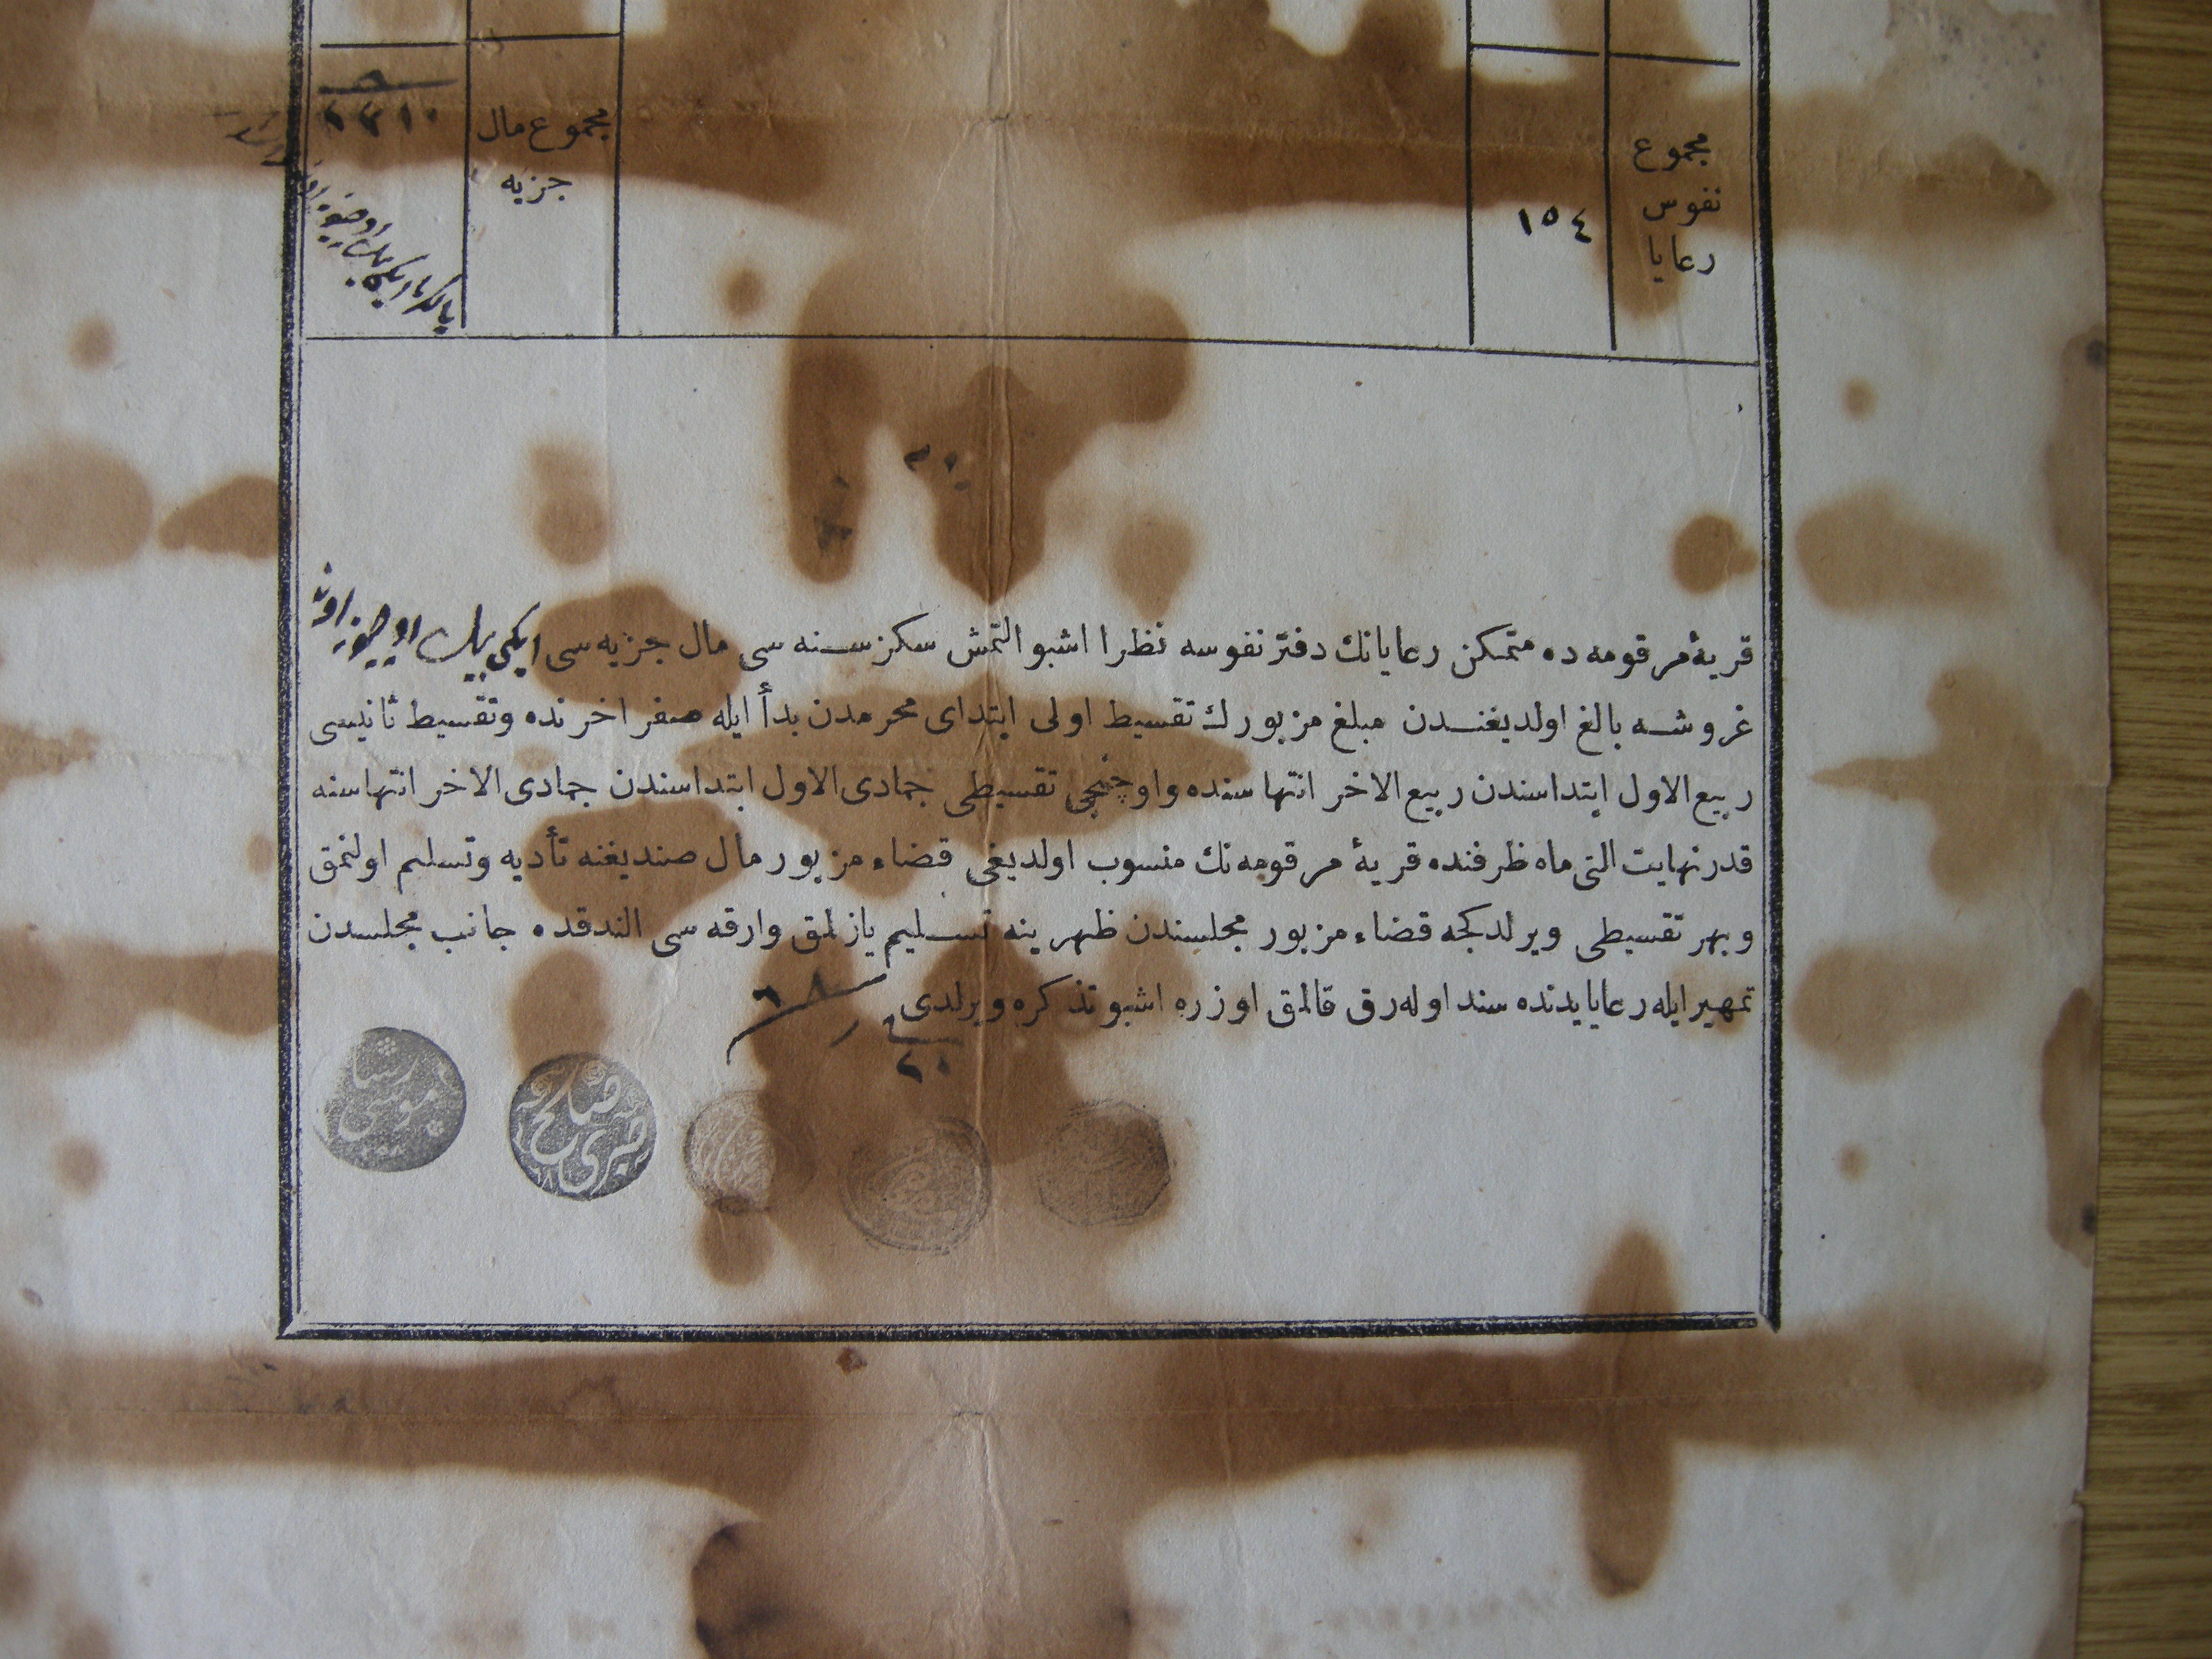 مجموع
نفوس
رعايا
١٥٤
مجموع مال
جزيه
٢٣١٠
يالكز ايكى بيك اوچيوز اون
قريۀ مرقومه ده متمكن رعايانك دفتر نفوسه نظرا اشبو التمش سكز سنه سى مال جزيه سى ايكى بيك اوچيوز اون
غروشه بالغ اولديغندن مبلغ مزبورك تقسيط اولى ابتداى محرمدن بدأ ايله صفر اخرنده وتقسيط ثانيسى
ربيع الاول ابتداسندن ربيع الاخر انتهاسنده واوچنجى تقسيطى جمادى الاول ابتداسندن جمادى الاخر انتهاسنه
قدر نهايت التى ماه ظرفنده قريۀ مرقومه نك منسوب اولديغى قضاء مزبور مال صنديغنه تأديه وتسليم اولنمق
وبهر تقسيطى ويرلدكجه قضاء مزبور مجلسندن ظهرينه تسليم يازلمق وارقه سى الندقده جانب مجلسدن
تمهير ايله رعايا يدنده سند اوله رق قالمق اوزره اشبو تذكره ويرلدى
٦٨
٢٠
صالح صبرى